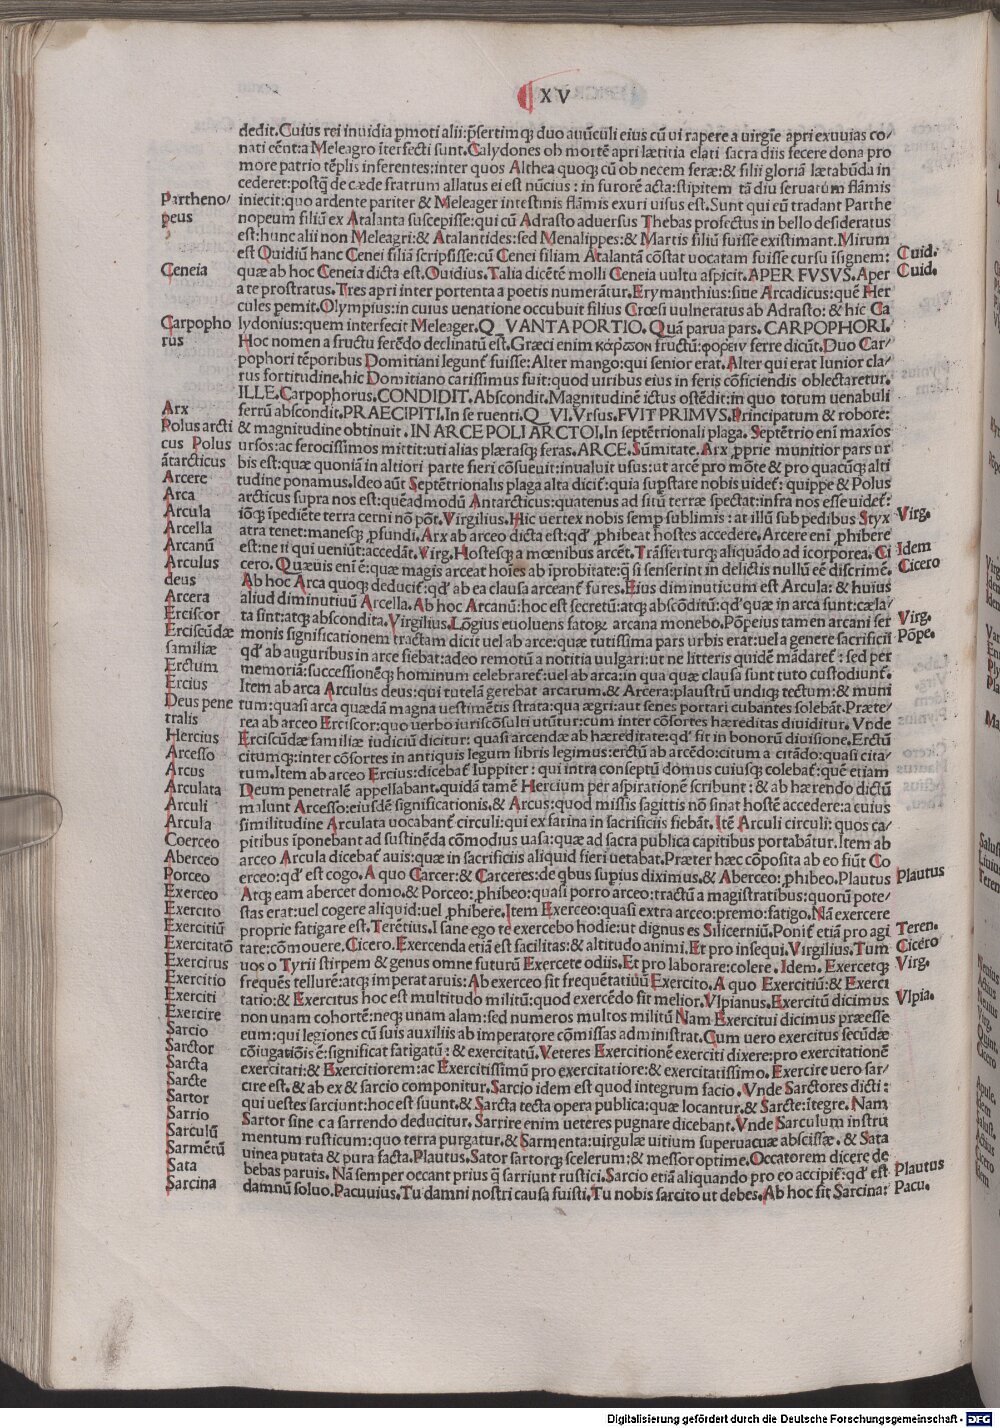 XV
dedit.Cuius rei inuidia ꝑmoti alii:p̃sertimqꝫ duo auũculi eius cũ ui rapere a uirgĩe apri exuuias co/
nati cẽnt:a Meleagro ĩterfecti sunt.Calydones ob mortẽ apri lætitia elati sacra diis fecere dona pro
more patrio tẽplis inferentes:inter quos Althea quoqꝫ cũ ob necem feræ:& filii gloriã lætabũda in
cederet:postq̃ de cæde fratrum allatus ei est nũcius:in furorẽ acta:stipitem tã diu seruatum flãmis
Partheno/
iniecit:quo ardente pariter & Meleager intestinis flãmis exuri uisus est.Sunt qui eũ tradant Parthe
peus
nopeum filiũ ex Atalanta suscepisse:qui cũ Adrasto aduersus Thebas profectus in bello desideratus
est:hunc alii non Meleagri:& Atalantides:sed Menalippes:& Martis filiũ fuisse existimant.Mirum
est Ouidiũ hanc Cenei filiã scripsisse:cũ Cenei filiam Atalantã cõstat uocatam fuisse cursu ĩsignem:
Ouid.
Ceneia
quæ ab hoc Ceneia dicta est.Ouidius.Talia dicẽtẽ molli Ceneia uultu aspicit.APER FVSVS.Aper
Ouid.
a te prostratus.Tres apri inter portenta a poetis numerãtur.Erymanthius:siue Arcadicus:quẽ Her
cules ꝑemit.Olympius:in cuius uenatione occubuit filius Crœsi uulneratus ab Adrasto:& hic Ca
Carpopho
lydonius:quem interfecit Meleager.Q_VANTA PORTIO.Quã parua pars.CARPOPHORI.
rus
Hoc nomen a fructu ferẽdo declinatũ est.Græci enim κάρποον fructũ:φορεῖν ferre dicũt.Duo Car/
pophori tẽporibus Domitiani legunt᷑ fuisse:Alter mango:qui senior erat.Alter qui erat Iunior cla/
rus fortitudine.hic Domitiano carissimus fuit:quod uiribus eius in feris cõficiendis oblectaretur.
ILLE.Carpophorus.CONDIDIT.Abscondit.Magnitudinẽ ictus ostẽdit:in quo totum uenabuli
Arx
ferrũ abscondit.PRAECIPITI.In se ruenti.Q_VI.Vrsus.FVIT PRIMVS.Principatum & robore:
Polus arcti
& magnitudine obtinuit.IN ARCE POLI ARCTOI.In septẽtrionali plaga.Septẽtrio eni᷑ maxios
cus Polus
ursos:ac ferocissimos mittit:uti alias plærasqꝫ feras.ARCE.Sũmitate.Arx ꝓprie munitior pars ur
ãtarcticus
bis est:quæ quoniã in altiori parte fieri cõsueuit:inualuit usus:ut arcẽ pro mõte & pro quacũqꝫ alti
Arcere
tudine ponamus.Ideo aũt Septẽtrionalis plaga alta dicit᷑:quia supstare nobis uidet᷑:quippe & Polus
Arca
arcticus supra nos est:quẽadmodũ Antarcticus:quatenus ad sitũ terræ spectat:infra nos esse uidet᷑:
Arcula
iõqꝫ ĩpediẽte terra cerni nõ põt.Virgilius.Hic uertex nobis semꝑ sublimis:at illũ sub pedibus Styx
Virg.
Arcella
atra tenet:manesqꝫ ꝓfundi.Arx ab arceo dicta est:qd' ꝓhibeat hostes accedere.Arcere eni᷑ ꝓhibere
Arcanũ
est:ne ii qui ueniũt:accedãt.Virg.Hostesqꝫ a mœnibus arcẽt.Trãsferturqꝫ aliquãdo ad ĩcorporea.Ci
Idem
Arculus
cero.Quæuis eni᷑ ẽ:quæ magis arceat hoĩes ab ĩprobitate:q̃ si senserint in delictis nullũ eẽ discrimẽ.
Cicero
deus
Ab hoc Arca quoqꝫ deducit᷑:qd' ab ea clausa arceant᷑ fures.Eius diminutiuum est Arcula:& huius
Arcera
aliud diminutiuũ Arcella.Ab hoc Arcanũ:hoc est secretũ:atqꝫ abscõditũ:qd' quæ in arca sunt:cæla/
Erciscor
ta sint:atqꝫ abscondita.Virgilius.Lõgius euoluens fatoꝝ arcana monebo.Põpeius tamen arcani ser
Virg.
Erciscũdæ
monis significationem tractam dicit uel ab arce:quæ tutissima pars urbis erat:uel a genere sacrificii
Põpe.
familiæ
qd' ab auguribus in arce fiebat:adeo remotũ a notitia uulgari:ut ne litteris quidẽ mãdaret᷑:sed per
Erctum
memoriã:successionẽqꝫ hominum celebraret᷑:uel ab arca:in qua quæ clausa sunt tuto custodiunt᷑.
Ercius
Item ab arca Arculus deus:qui tutelã gerebat arcarum.& Arcera:plaustrũ undiqꝫ tectum:& muni
Deus pene
tum:quasi arca quædã magna uestimẽtis strata:qua ægri:aut senes portari cubantes solebãt.Præte/
tralis
rea ab arceo Erciscor:quo uerbo iuriscõsulti utũtur:cum inter cõsortes hæreditas diuiditur.Vnde
Hercius
Erciscũdæ familiæ iudiciũ dicitur:quasi arcendæ ab hæreditate:qd' sit in bonorũ diuisione.Erctũ
Arcesso
citumqꝫ:inter cõsortes in antiquis legum libris legimus:erctũ ab arcẽdo:citum a citãdo:quasi cita/
Arcus
tum.Item ab arceo Ercius:dicebat᷑ Iuppiter:qui intra conseptũ domus cuiusqꝫ colebat᷑:quẽ etiam
Arculata
Deum penetralẽ appellabant.quidã tamẽ Hercium per aspirationẽ scribunt:& ab hærendo dictũ
Arculi
malunt Arcesso:eiusdẽ significationis.& Arcus:quod missis sagittis nõ sinat hostẽ accedere:a cuius
Arcula
similitudine Arculata uocabant᷑ circuli:qui ex farina in sacrificiis fiebãt.Itẽ Arculi circuli:quos ca/
Coerceo
pitibus ĩponebant ad sustinẽda cõmodius uasa:quæ ad sacra publica capitibus portabãtur.Item ab
Aberceo
arceo Arcula dicebat᷑ auis:quæ in sacrificiis aliquid fieri uetabat.Præter hæc cõposita ab eo fiũt Co
Porceo
erceo:qd' est cogo.A quo Carcer:& Carceres:de qbus supius diximus.& Aberceo:ꝓhibeo.Plautus
Plautus
Exerceo
Atqꝫ eam abercer domo.& Porceo:ꝓhibeo:quasi porro arceo:tractũ a magistratibus:quorũ pote/
Exercito
stas erat:uel cogere aliquid:uel ꝓhibere.Item Exerceo:quasi extra arceo:premo:fatigo.Nã exercere
Exercitiũ
proprie fatigare est.Terẽtius.I sane ego te exercebo hodie:ut dignus es Silicerniũ.Ponit᷑ etiã pro agi
Teren.
Exercitatõ
tare:cõmouere.Cicero.Exercenda etiã est facilitas:& altitudo animi.Et pro insequi.Virgilius.Tum
Cicero
Exercitus
uos o Tyrii stirpem & genus omne futurũ Exercete odiis.Et pro laborare:colere.Idem.Exercetqꝫ
Virg.
Exercitio
frequẽs tellurẽ:atqꝫ imperat aruis:Ab exerceo fit frequẽtatiuũ Exercito.A quo Exercitiũ:& Exerci
Exerciti
tatio:& Exercitus hoc est multitudo militũ:quod exercẽdo fit melior.Vlpianus.Exercitũ dicimus
Vlpia.
Exercire
non unam cohortẽ:neqꝫ unam alam:sed numeros multos militũ Nam Exercitui dicimus præesse
Sarcio
eum:qui legiones cũ suis auxiliis ab imperatore cõmissas administrat.Cum uero exercitus secũdæ
Sarctor
cõiugatiõis ẽ:significat fatigatũ:& exercitatũ.Veteres Exercitionẽ exerciti dixere:pro exercitationẽ
Sarcta
exercitati:& Exercitiorem:ac Exercitissimũ pro exercitatiore:& exercitatissimo.Exercire uero sar/
Sarcte
cire est.& ab ex & sarcio componitur.Sarcio idem est quod integrum facio.Vnde Sarctores dicti:
Sartor
qui uestes sarciunt:hoc est suunt.& Sarcta tecta opera publica:quæ locantur.& Sarcte:ĩtegre.Nam
Sarrio
Sartor sine c a sarrendo deducitur.Sarrire enim ueteres pugnare dicebant.Vnde Sarculum instru
Sarculũ
mentum rusticum:quo terra purgatur.& Sarmenta:uirgulæ uitium superuacuæ abscissæ.& Sata
Sarmẽtũ
uinea putata & pura facta.Plautus.Sator sartorqꝫ scelerum:& messor optime.Occatorem dicere de
Sata
bebas paruis.Nã semper occant prius q̃ sarriunt rustici.Sarcio etiã aliquando pro eo accipit᷑:qd' est
Plautus
Sarcina
damnũ soluo.Pacuuius.Tu damni nostri causa fuisti.Tu nobis sarcito ut debes.Ab hoc fit Sarcina:
Pacu.
Digitalisierung gefördert durch die Deutsche Forschungsgemeinschaft - DFG